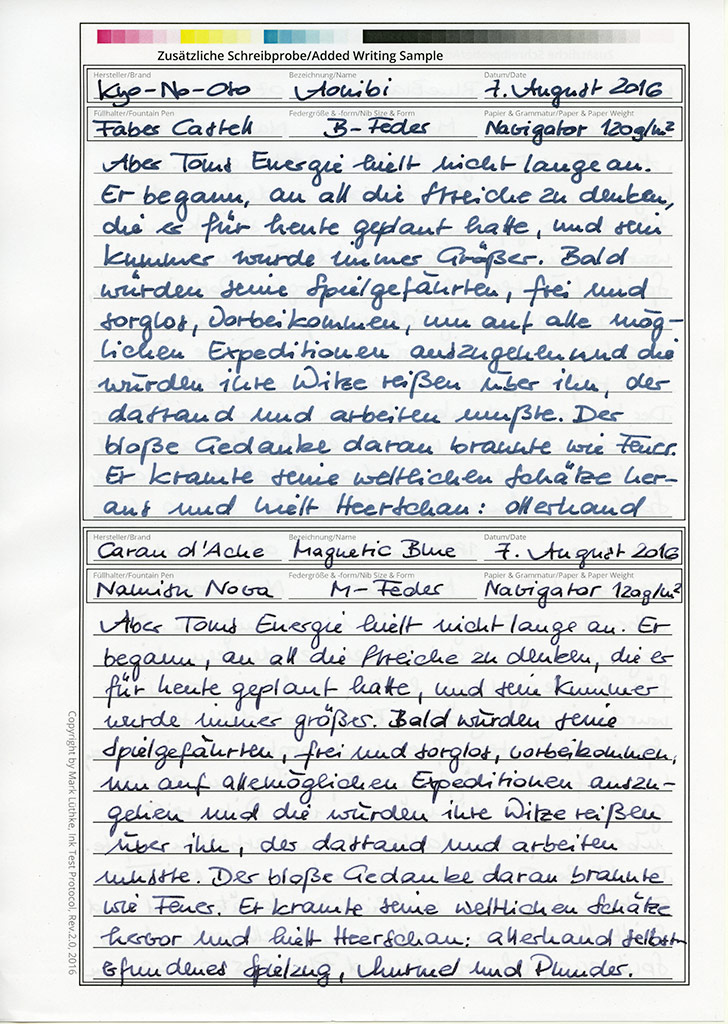 Zusätzliche Schreibprobe/Added Writing Sample
Hersteller/Brand Bezeichnung/Name Datum/Date
Kyo-No-Oto Aonibi 7. August 2016
Füllhalter/Fountain Pen Federgröße & -form/Nib Size & Form Papier & Grammatur/Paper & Paper Weight
Faber Castell B-Feder Navigator 120g/m²
Aber Toms Energie hielt nicht lange an.
Er begann, an all die Streiche zu denken,
die er für heute geplant hatte, und sein
Kummer wurde immer Größer. Bald
würden seine Spielgefährten, frei und
sorglos, vorbeikommen, um auf alle mög-
lichen Expeditionen auszugehen und die
würden ihre Witze reißen über ihn, der
dastand und arbeiten mußte. Der
bloße Gedanke daran brannte wie Feuer.
Er kramte seine weltlichen Schätze her-
aus und hielt Heerschau: allerhand
Hersteller/Brand Bezeichnung/Name Datum/Date
Caran d'Ache Magnetic Blue 7. August 2016
Füllhalter/Fountain Pen Federgröße & -form/Nib Size & Form Papier & Grammatur/Paper & Paper Weight
Namisu Nova M-Feder Navigator 120g/m²
Aber Toms Energie hielt nicht lange an. Er
begann, an all die Streiche zu denken, die er
für heute geplant hatte, und sein Kummer
wurde immer größer. Bald würden seine
Spielgefährten, frei und sorglos, vorbeikommen,
um auf alle möglichen Expeditionen auszu-
gehen und die würden ihre Witze reißen
über ihn, der dastand und arbeiten
musste. Der bloße Gedanke daran brannte
wie Feuer. Er kramte seine weltlichen Schätze
hervor und hielt Heerschau: allerhand selbst
erfundenes Spielzug, Murmel und Plunder.
Copyright by Mark Lüthke, Ink Test Protocol, Rev.2.0, 2016